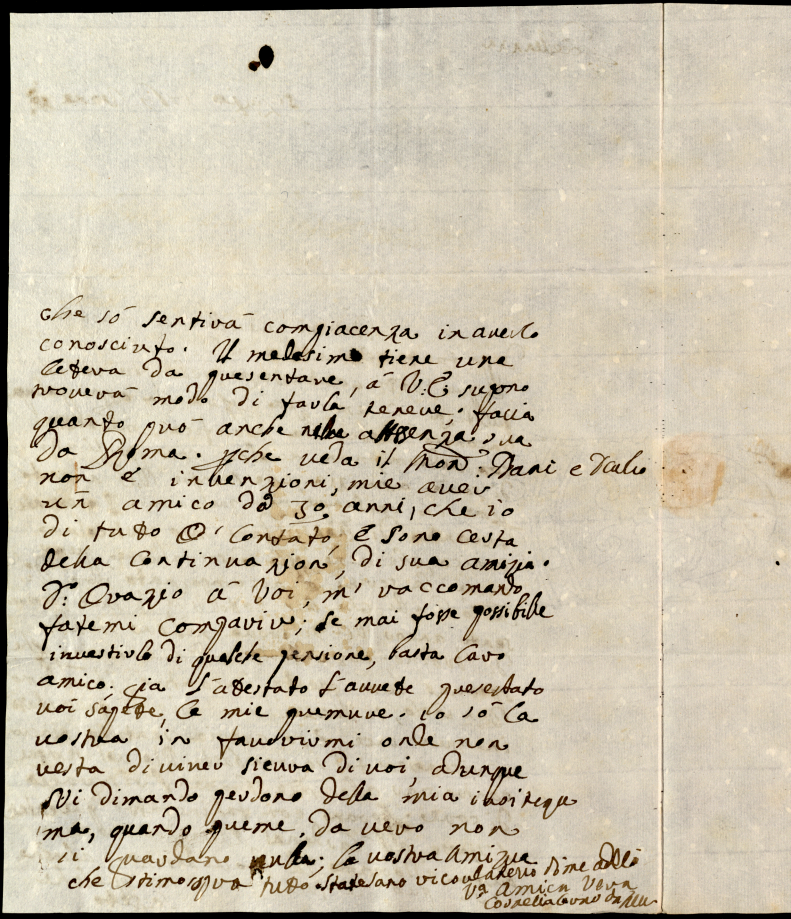 che só sentirà compiacenza in averlo
conosciuto. Il medesimo tiene una
letera da presentare, à V.E. supono
troverà modo di farla tenere. facia
quanto può anche nella assenza sua
da Roma. pche veda il Mon.r Dani e
non è invenzioni, mie aver
un amico da 30 anni, che io
di tutto ò contato è sono certa
della continuazion, di sua amizia.
D. Orazio à voi, mi raccomando
fatemi compavir; se mai fosse possibille
investirlo di qualche pensione, basta caro
amico, gia l'atestato l'avvete presentato
voi sapete, le mie premure. io só la
vostra in favorirmi onde non
resta di viver sicura di voi, adunque
vi dimando perdono della mia
ma, quando preme, da vero non
si guardano nulla; la vostra amizia
che stimo sopra tutto. state sano ricordatevi di me adio
V.a Amica Vera
Cornelia